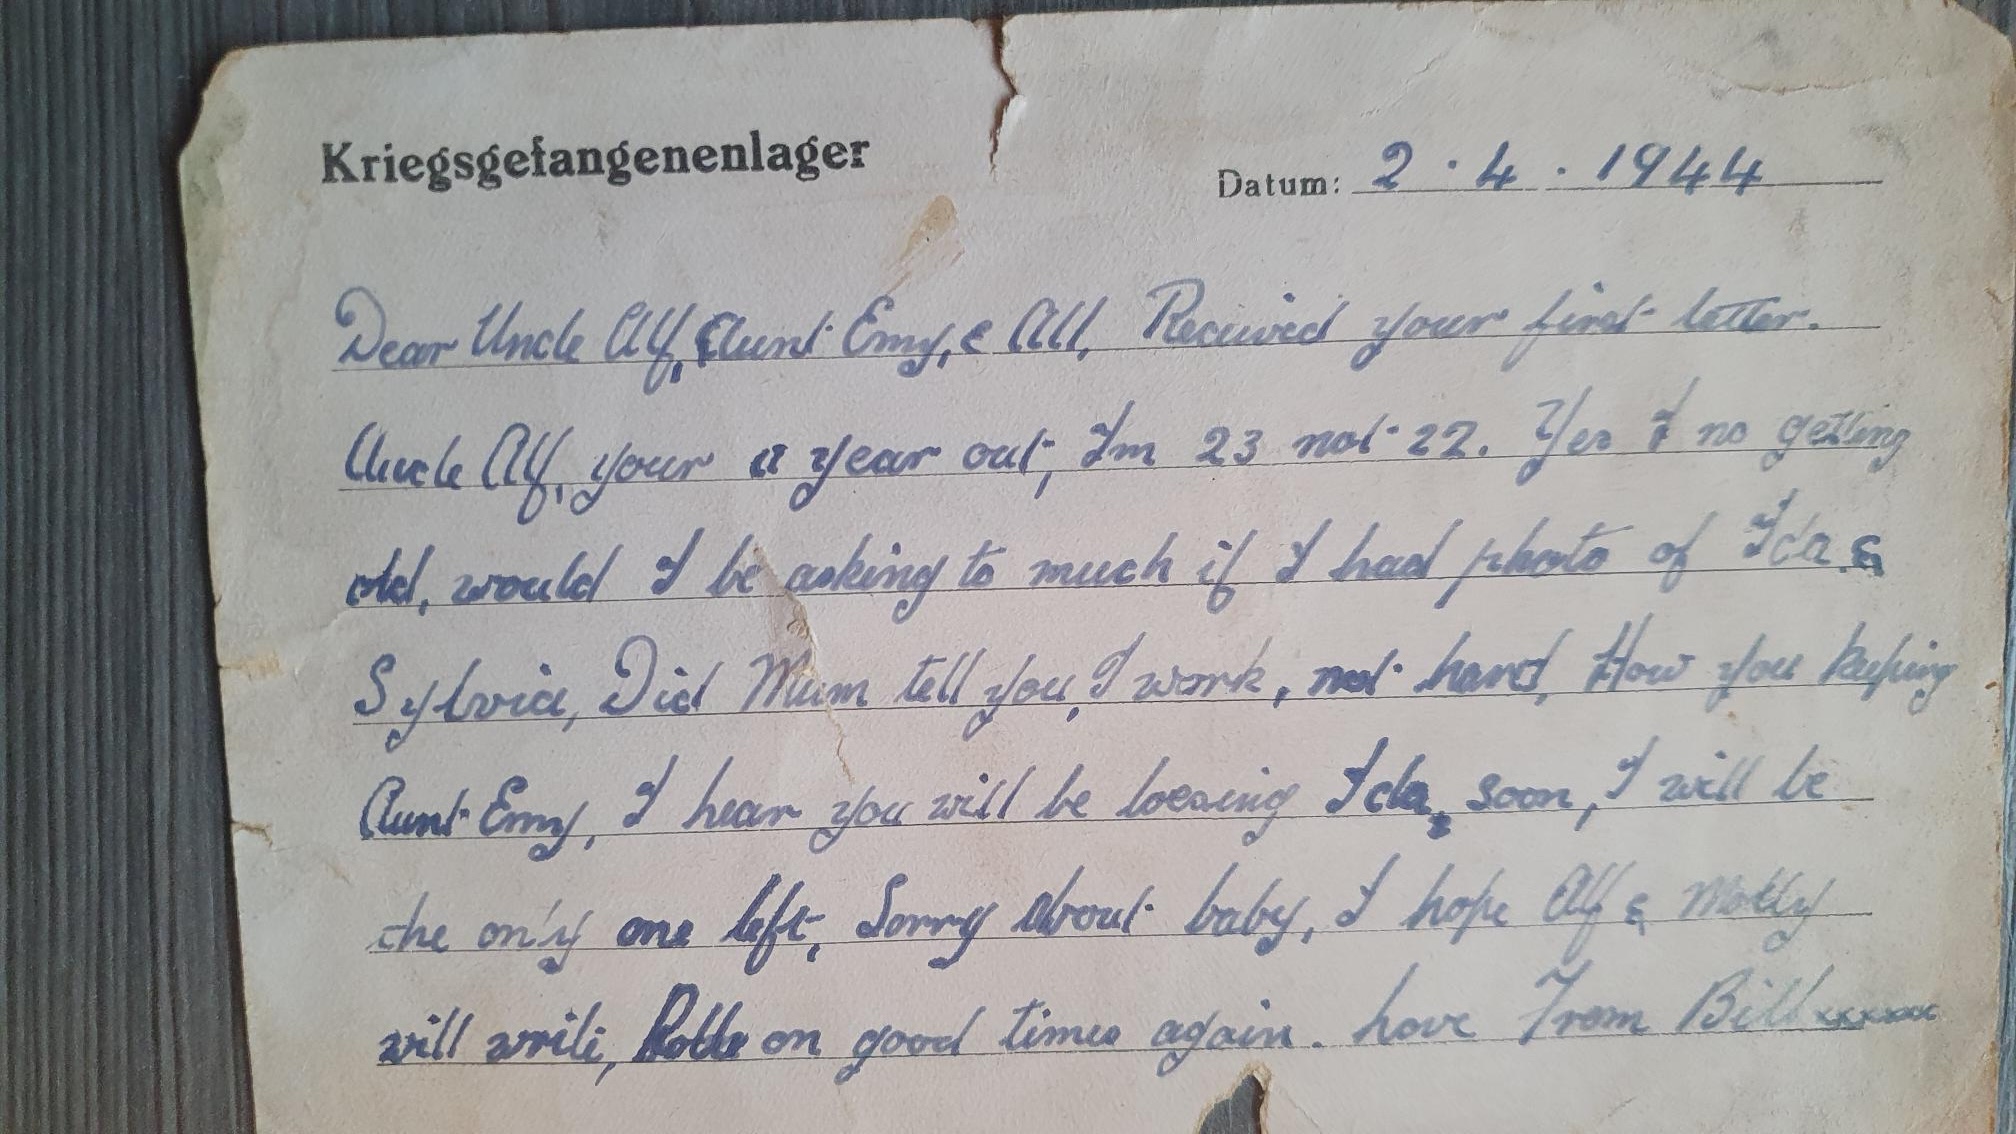 Kriegsgefangenenlager
Datum: 2.4.1944
Dear Uncle Alf, Aunt Emy, & All, Received your first letter.
Uncle Alf, your a year out, I'm 23 not 22. Yes I no getting
old, would I be asking to much if I had photo of Ida &
Sylvia, Did Mum tell you, I work, not hard, How you keeping
Aunt Emy, I hear you will be loosing Ida, soon, I will be
the on'y one left, Sorry about baby, I hope Alf & Molly
will write, Rolle on good times again. Love From Bill xxxxxx